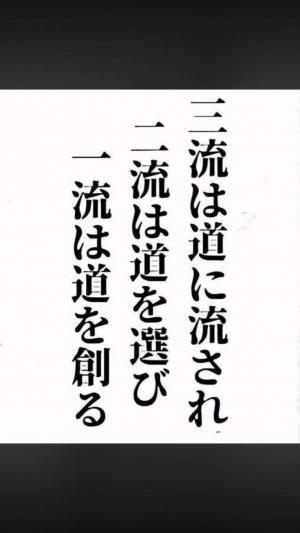 三流は道に流され
二流は道を選び
一流は道を創る